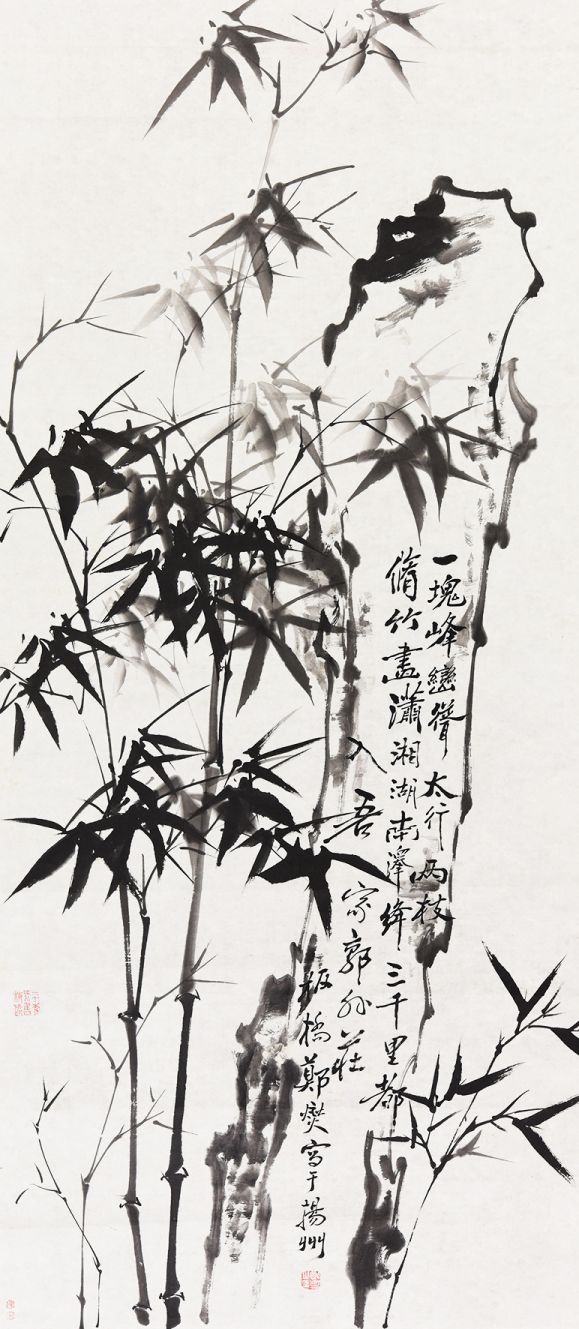 一塊峰巒聳太行兩枝
脩竹畫瀟湘湖南澤絳三千里都
入吾家郭外莊
板橋鄭燮寫于揚州